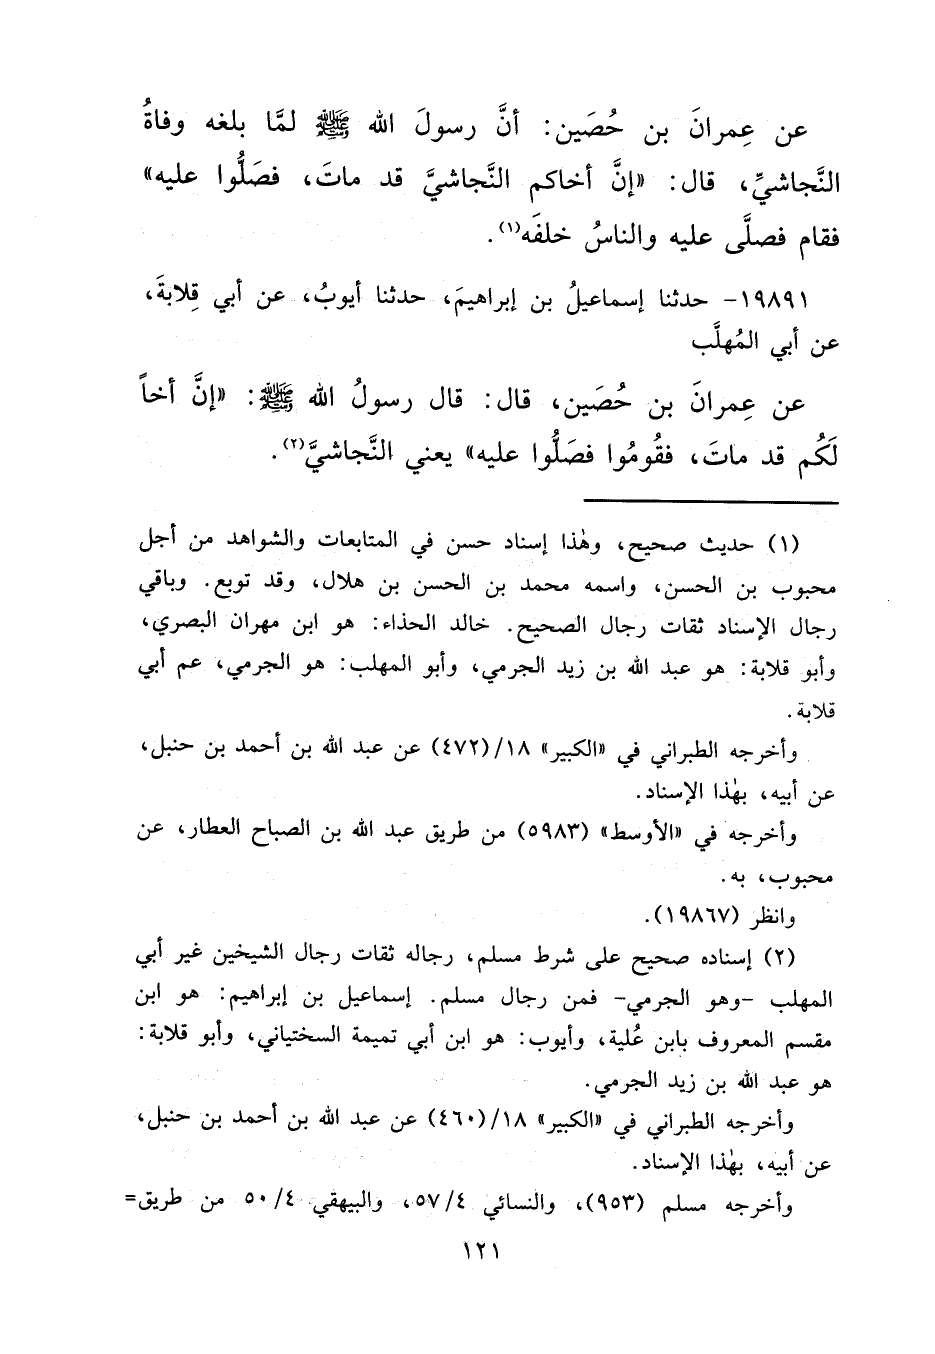 عن عِمرانَ بن حُصَين: أنَّ رسولَ الله ﷺ لمَّا بلغه وفاةُ
النَّجاشيِّ، قال: «إنَّ أخاكم النَّجاشيَّ قد ماتَ، فصَلُّوا عليه»
فقام فصلَّى عليه والناسُ خلفَه(١).
١٩٨٩١- حدثنا إسماعيلُ بن إبراهيمَ، حدثنا أيوبُ، عن أبي قِلابةَ،
عن أبي المُهلَّب
عن عِمرانَ بن حُصَين، قال: قال رسولُ الله ﷺ: «إنَّ أخاً
لَكُم قد ماتَ، فقُومُوا فصَلُّوا عليه» يعني النَّجاشيَّ(٢).
(١) حديث صحيح، وهٰذا إسناد حسن في المتابعات والشواهد من أجل
محبوب بن الحسن، واسمه محمد بن الحسن بن هلال، وقد توبع. وباقي
رجال الإسناد ثقات رجال الصحيح. خالد الحذاء: هو ابن مهران البصري،
وأبو قلابة: هو عبد الله بن زيد الجرمي، وأبو المهلب: هو الجرمي، عم أبي
قلابة.
وأخرجه الطبراني في «الكبير» ١٨/(٤٧٢) عن عبد الله بن أحمد بن حنبل،
عن أبيه، بهٰذا الإسناد.
وأخرجه في «الأوسط» (٥٩٨٣) من طريق عبد الله بن الصباح العطار، عن
محبوب، به.
وانظر (١٩٨٦٧).
(٢) إسناده صحيح على شرط مسلم، رجاله ثقات رجال الشيخين غير أبي
المهلب -وهو الجرمي- فمن رجال مسلم. إسماعيل بن إبراهيم: هو ابن
مقسم المعروف بابن عُلية، وأيوب: هو ابن أبي تميمة السختياني، وأبو قلابة:
هو عبد الله بن زيد الجرمي.
وأخرجه الطبراني في «الكبير» ١٨/(٤٦٠) عن عبد الله بن أحمد بن حنبل،
عن أبيه، بهٰذا الإسناد.
وأخرجه مسلم (٩٥٣)، والنسائي ٥٧/٤، والبيهقي ٥٠/٤ من طريق=
١٢١